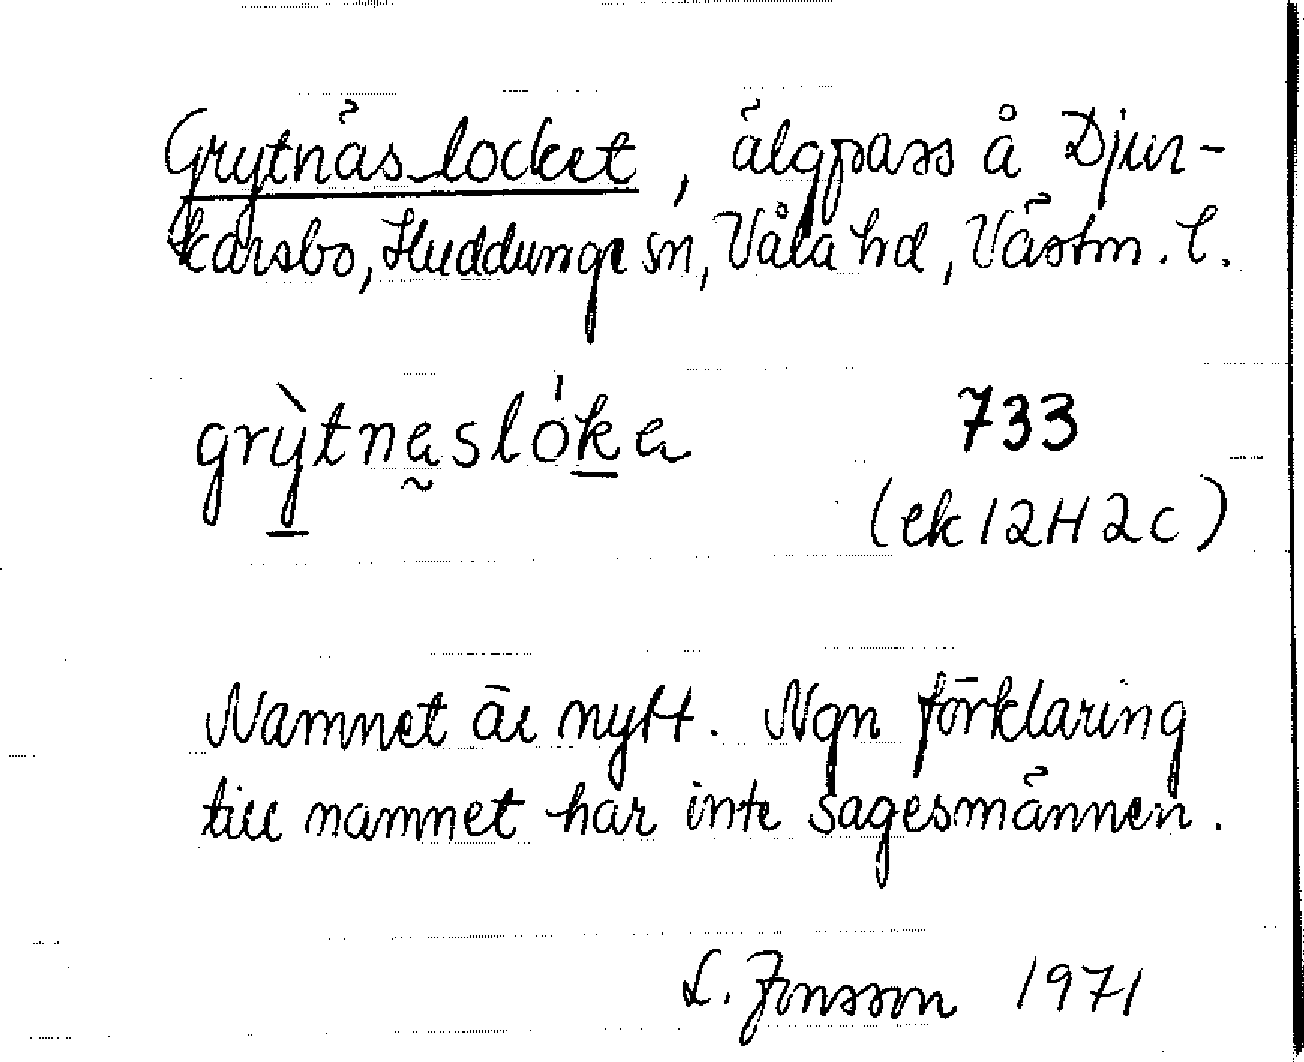 Grytnäslocket, älgpass å Djur-
karsbo, Huddunge sn, Våla hd, Västm. l.
grỳtna̰slók̲a 733
(ek 12H2c)
Namnet är nytt. Ngn förklaring
till namnet har inte sagesmännen.
L. Jonsson 1971